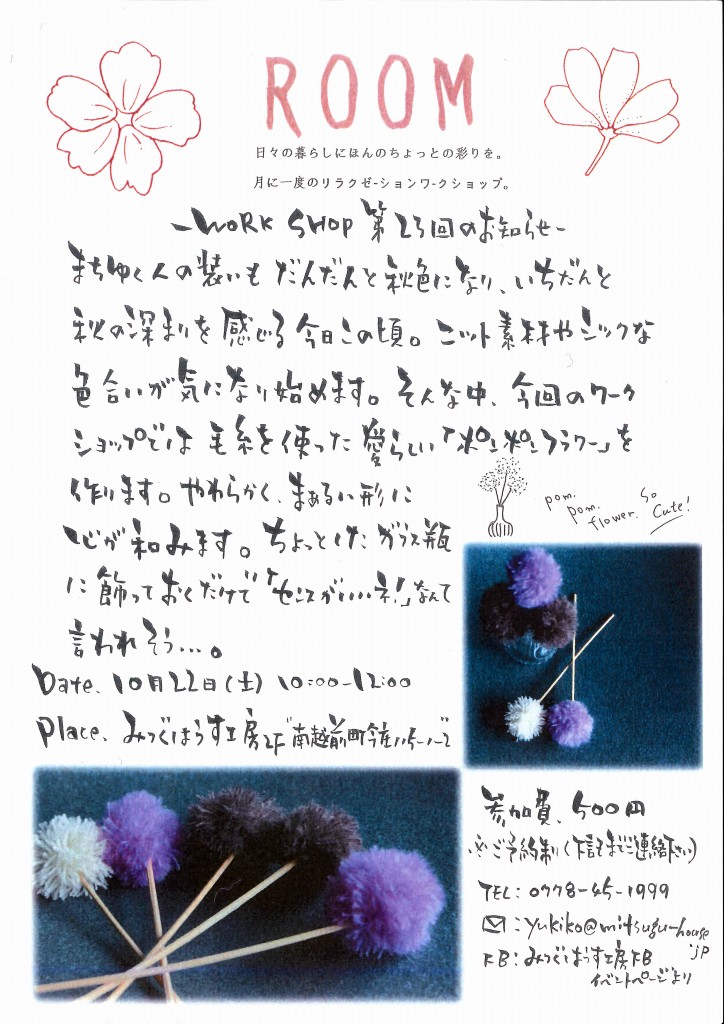 ROOM
日々の暮らしにほんのちょっとの彩りを。
月に一度のリラクゼーションワークショップ。
-WORK SHOP 第23回のお知らせ-
まちゆく人の装いも だんだんと秋色になり、いちだんと
秋の深まりを感じる今日この頃。ニット素材やシックな
色合いが気になり始めます。そんな中、今回のワーク
ショップでは毛糸を使った愛らしい「ポンポンフラワー」を
作ります。やわらかく、まあるい形に
心が和みます。ちょっとした ガラス瓶
に飾っておくだけで「センスがいいネ!」なんて
言われそう…。
pom.
pom.
flower. so
Cute!
Date. 10月22日(土) 10:00-12:00
Place. みつぐはうす工房2F 南越前町今庄
参加費. 500円
※ご予約制(下記までご連絡下さい)
TEL: 0778-45-1999
✉:yukiko@mitsugu-house.jp
FB:みつぐはうす工房FB
イベントページより